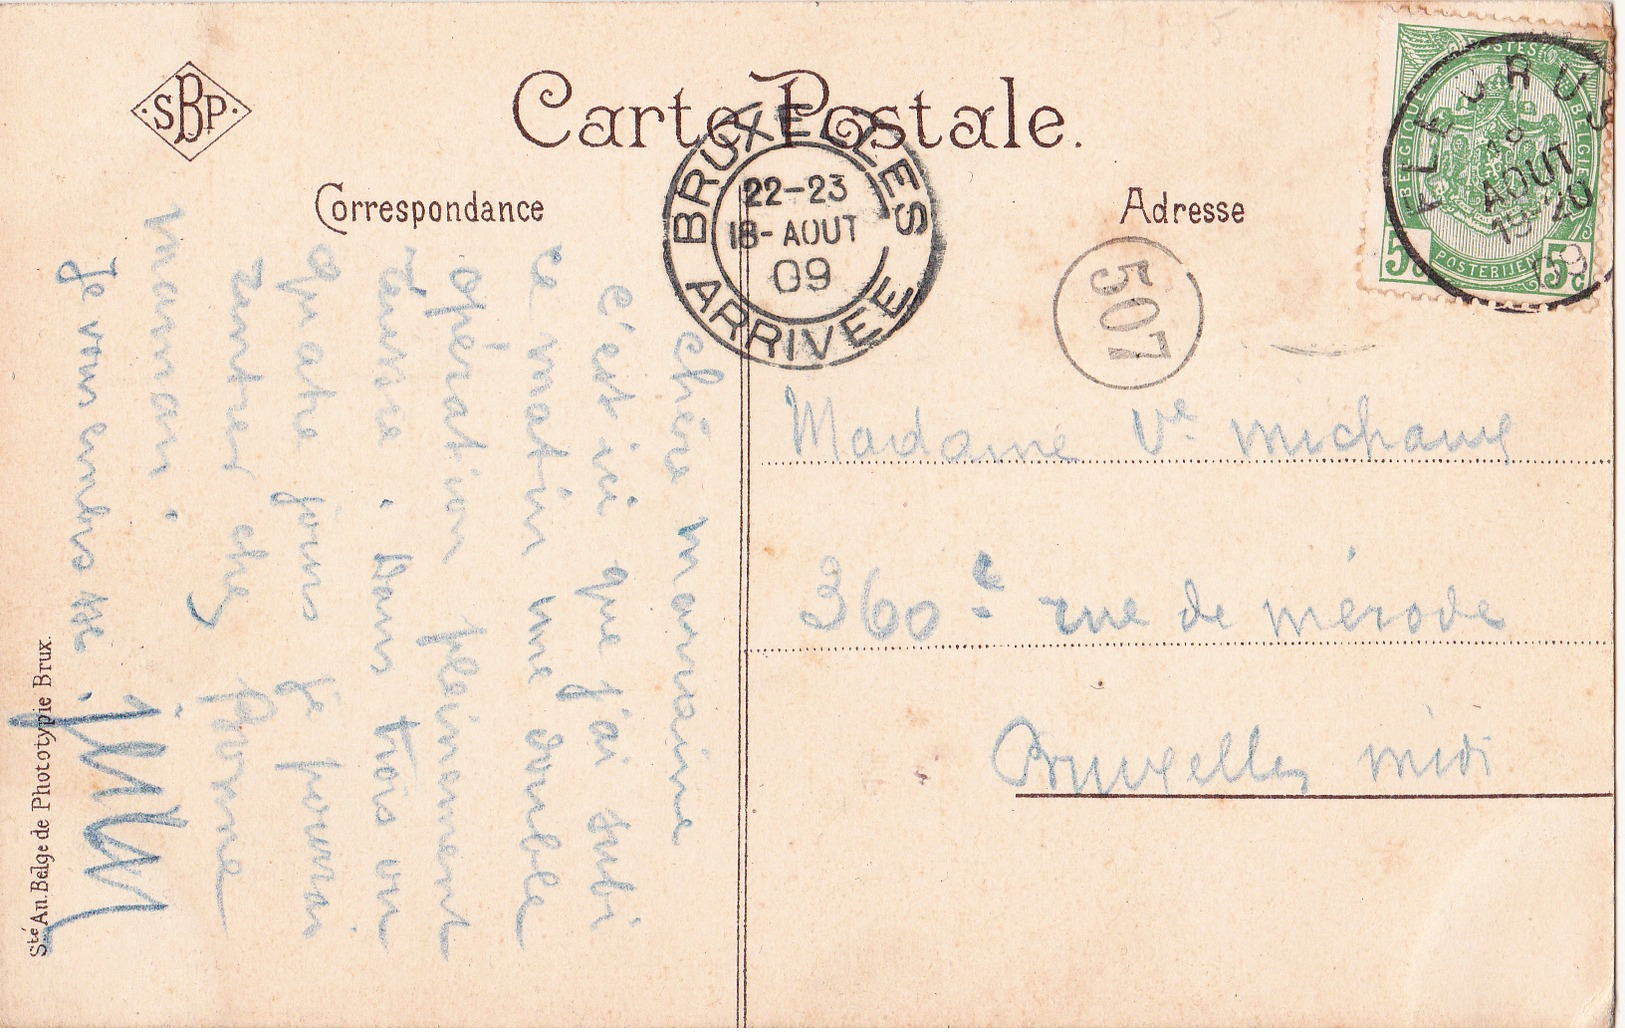 SBP
Carte Postale.
Correspondance
Adresse
BRUXELLES
22-23
18-AOUT
09
ARRIVEE
507
POSTES
BELGIQUE
BELGIE
POSTERIJEN
5c 5c
FLEURUS
18
AOUT
19-20
09
chère marraine
C'est ici que j'ai subi
ce matin une double
opération pleinement
réussie. Dans trois ou
quatre jours je pourrai
rentrer chez bonne
maman.
Je vous embrasse.
Madame Ve Michaux
360 rue de Mérode
Bruxelles midi
Sté An. Belge de Phototypie Brux.